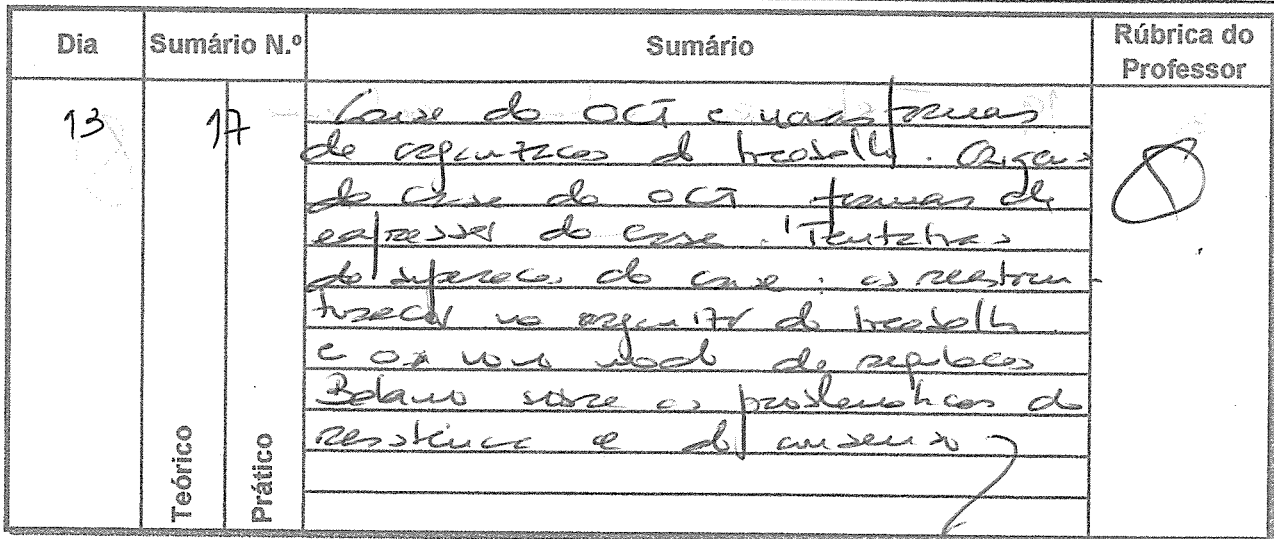 Dia Sumário N.º Sumário Rúbrica do Professor
13 17
Crise do OCT e novas formas
de organização do trabalho. Origens
da crise do OCT formas de
expressão da crise. Tentativas
de superação da crise: as reestru-
turações na organiz. do trabalho
e o novo modo de regulação
Balanço sobre as problemáticas da
resistência e do consenso
Teórico
Prático